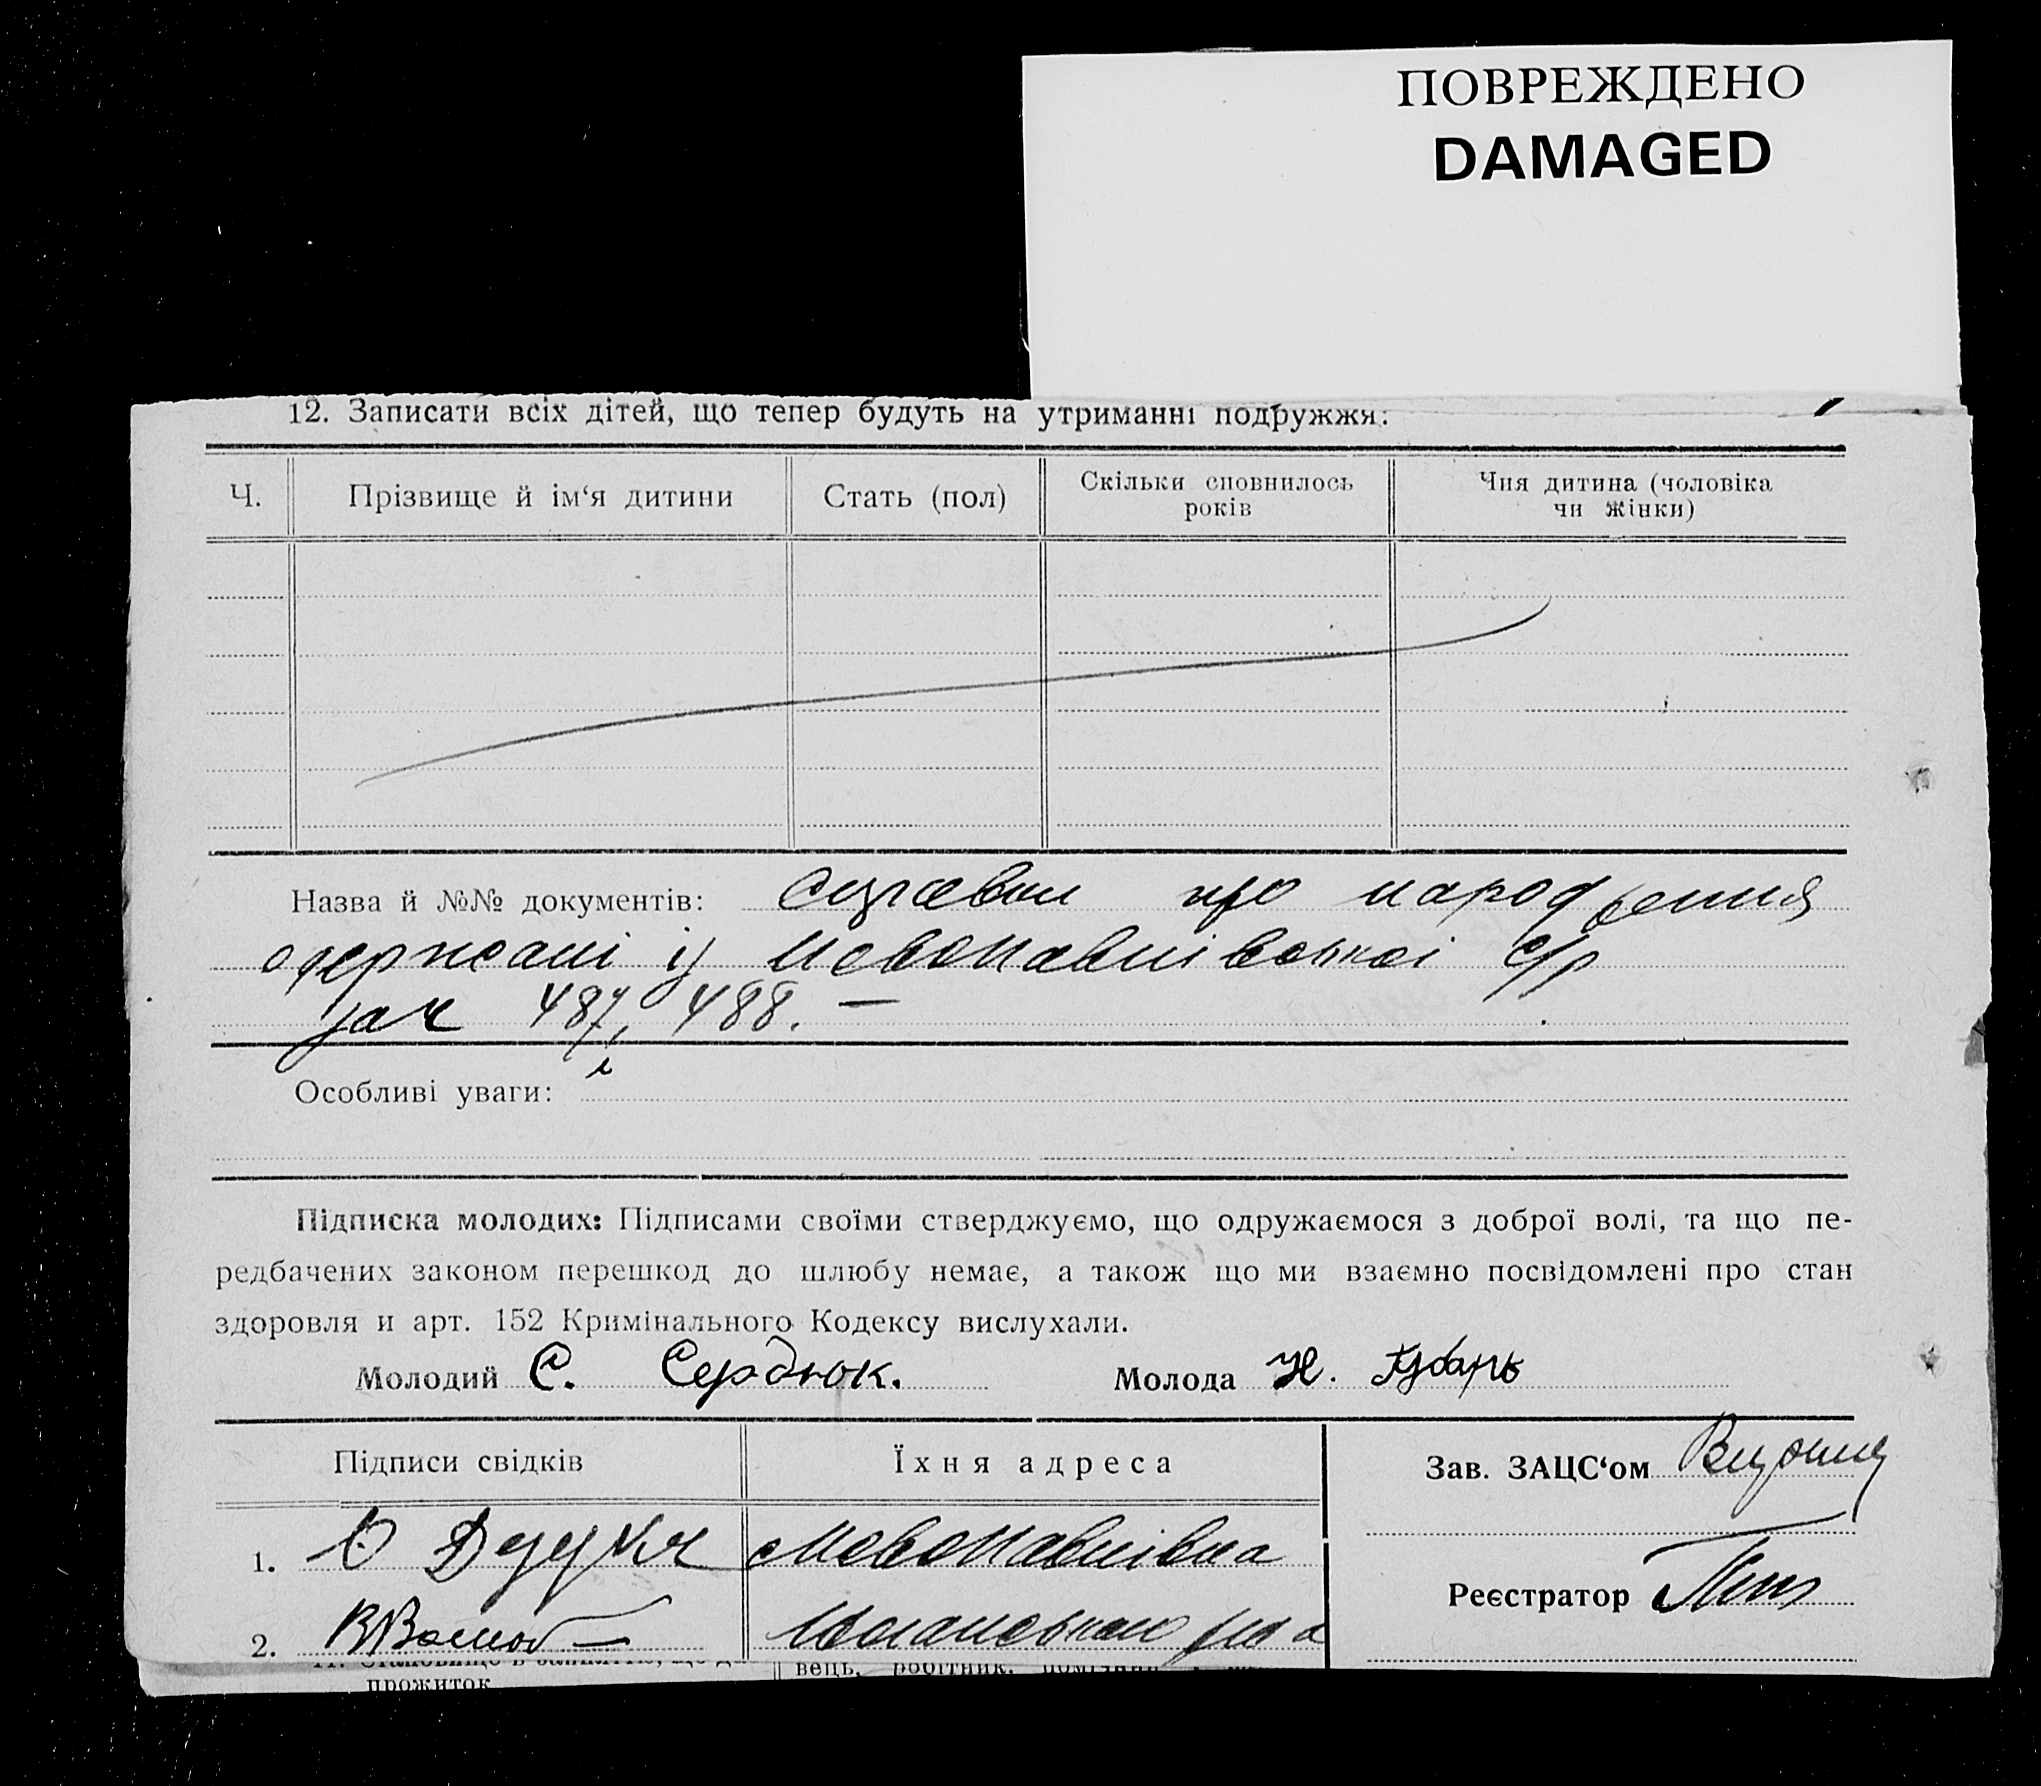 ПОВРЕЖДЕНО
DAMAGED
12. Записати всіх дітей, що тепер будуть на утриманні подружжя:
Ч. Прізвище й ім‘я дитини Стать (пол) Скільки сповнилось років Чия дитина (чоловіка чи жінки)
Назва й №№ документів: про народження
одержані із НовоПавлівської с/р
зач 487, 488. —
і
Особливі уваги:
Підписка молодих: Підписами своїми стверджуємо, що одружаємося з доброї волі, та що пе-
редбачених законом перешкод до шлюбу немає, а також що ми взаємно посвідомлені про стан
здоровля и арт. 152 Кримінального Кодексу вислухали.
Молодий С. Сердюк. Молода Н. Губарь
Підписи свідків Їхня адреса Зав. ЗАЦС‘ом
1. НовоПавлівка
Реєстратор
2.
вець, робітник,
прожиток